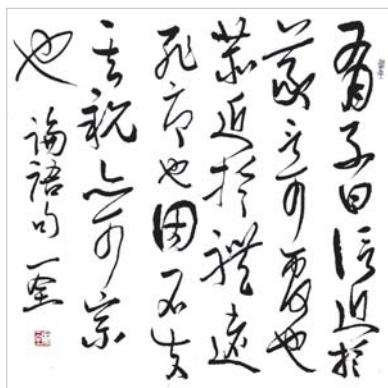 有子曰信近於
義言可覆也
恭近於禮遠
恥辱也因不失
其親亦可宗
也
論語句